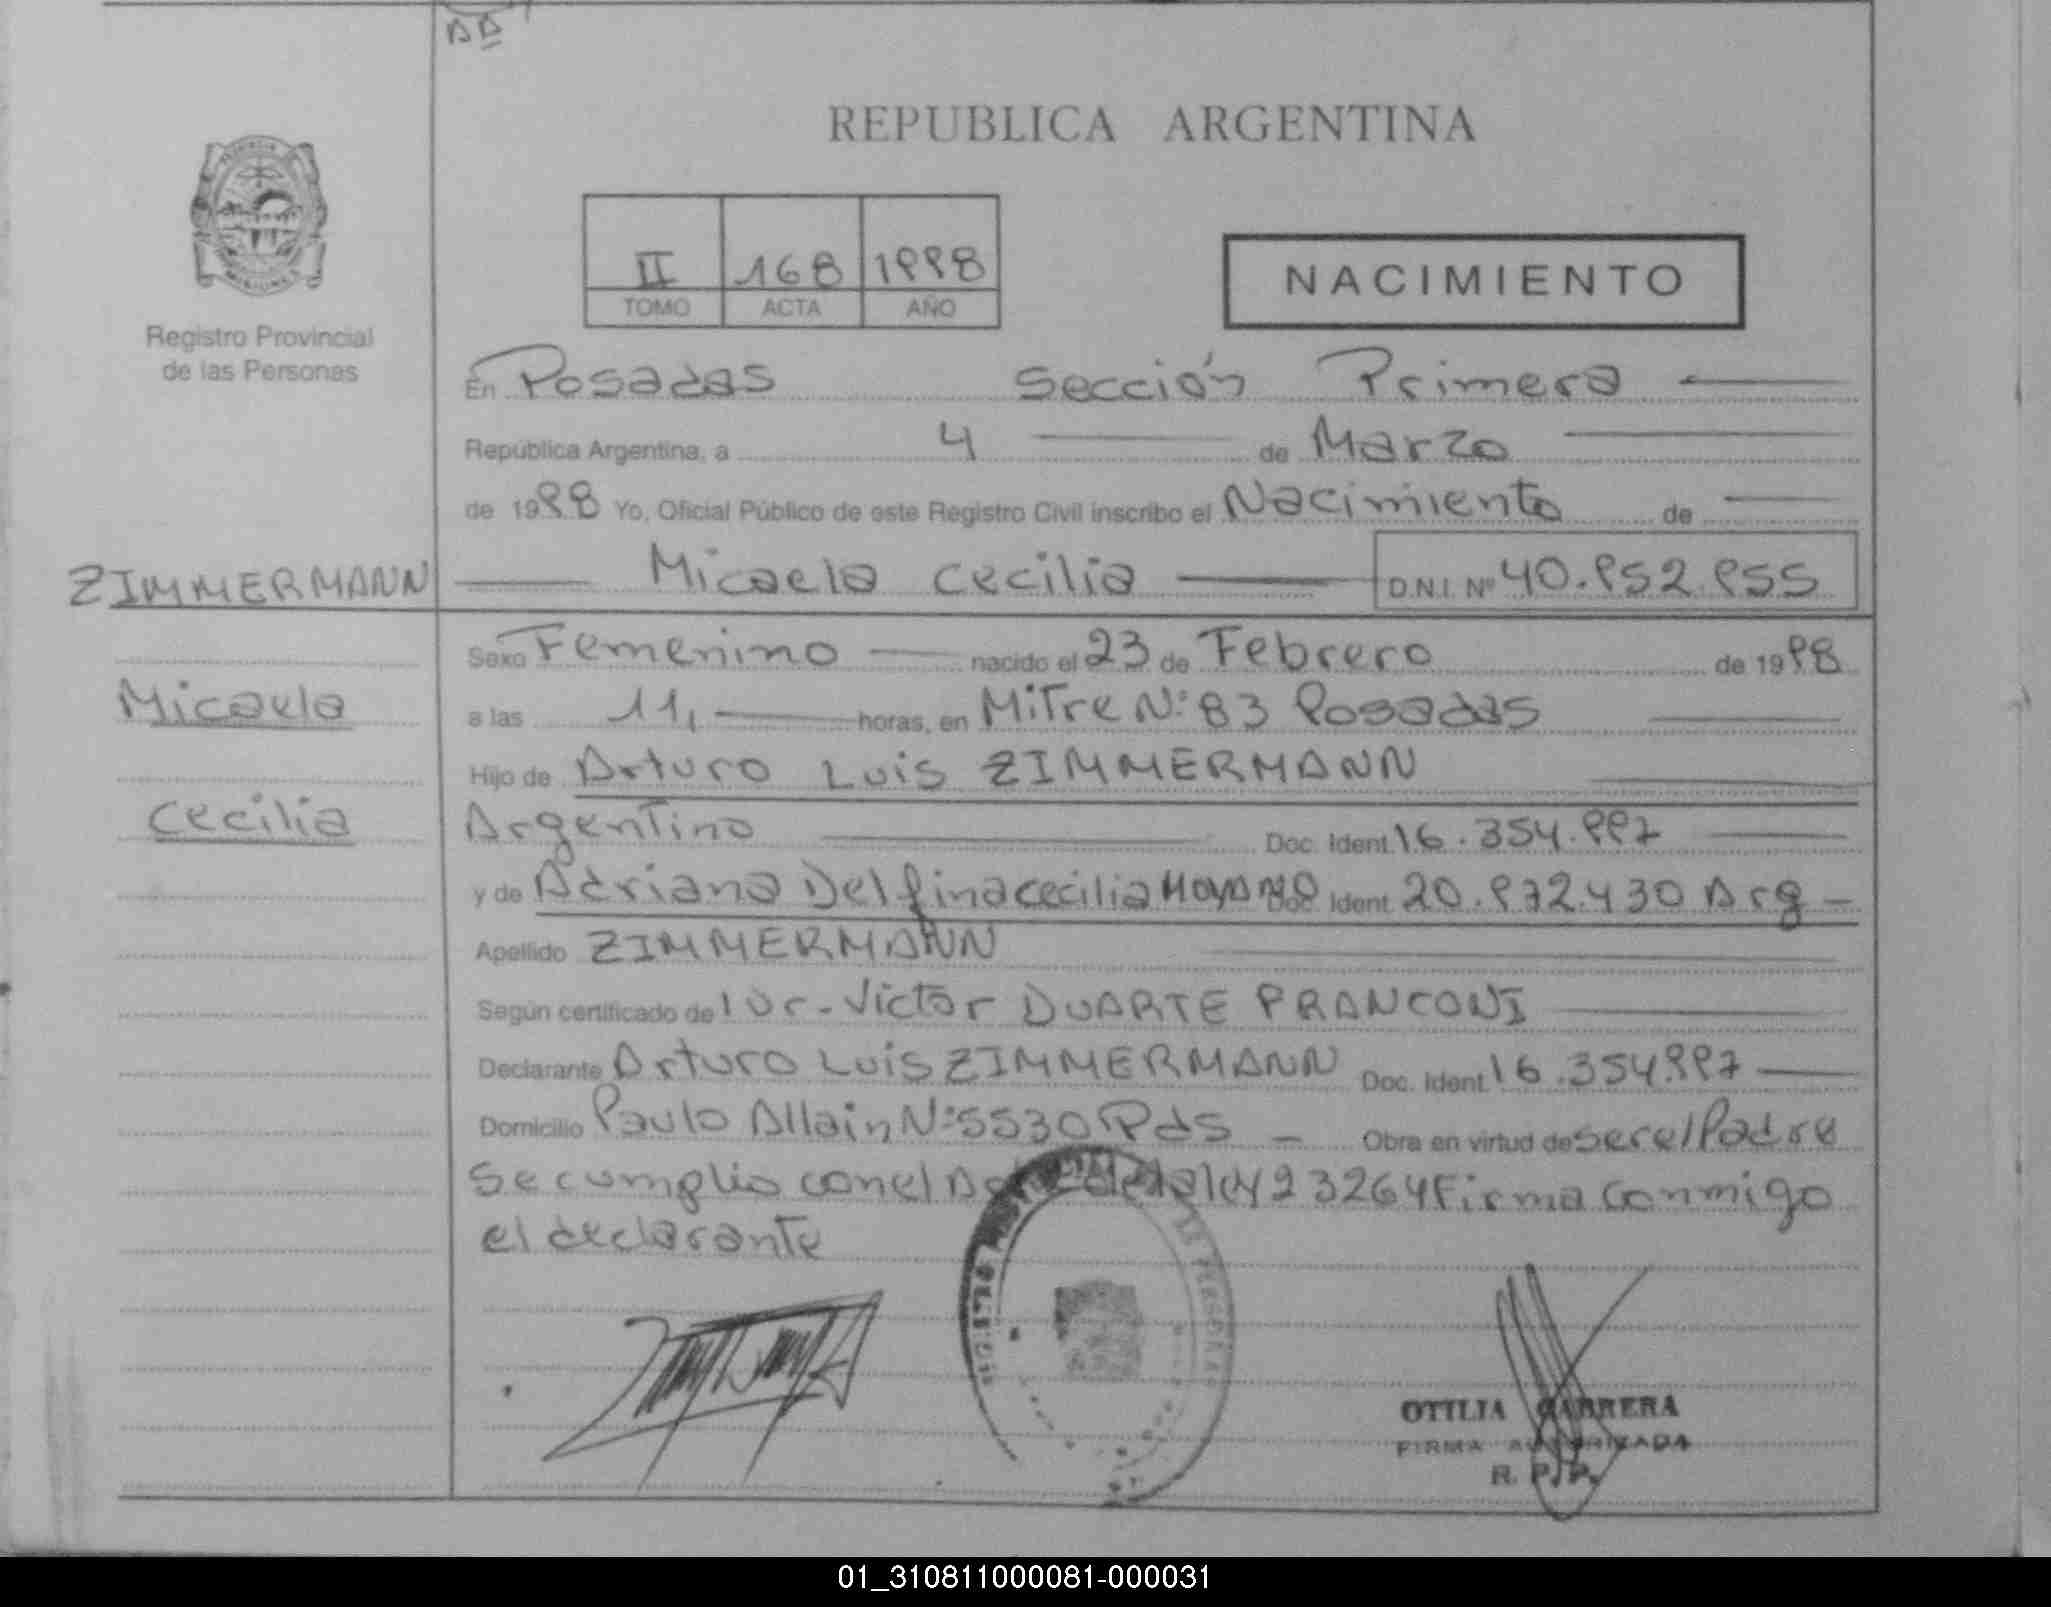 REPUBLICA ARGENTINA
II 168 1998
TOMO ACTA AÑO
NACIMIENTO
Registro Provincial
de las Personas
En Posadas Sección Primera
República Argentina, a 4 de Marzo
de 1998 Yo, Oficial Público de este Registro Civil inscribo el Nacimiento de
ZIMMERMANN
Micaela Cecilia D.N.I. Nº 40.952.955
Micaela
Cecilia
Sexo Femenino nacido el 23 de Febrero de 1998
a las 11, horas, en Mitre Nº 83 Posadas
Hijo de Arturo Luis ZIMMERMANN
Argentino Doc. Ident. 16.354.997
y de Adriana Delfina Cecilia MOYANO Doc. Ident. 20.972.430 Arg
Apellido ZIMMERMANN
Según certificado del Dr. Victor DUARTE PRANCONI
Declarante Arturo Luis ZIMMERMANN Doc. Ident. 16.354.997
Domicilio Paulo Allain Nº 5530 Pds Obra en virtud de ser el Padre
Se cumplio con el la ley 23264 Firma conmigo
el declarante
OTILIA CABRERA
FIRMA AUTORIZADA
R. P. P.
01_310811000081-000031